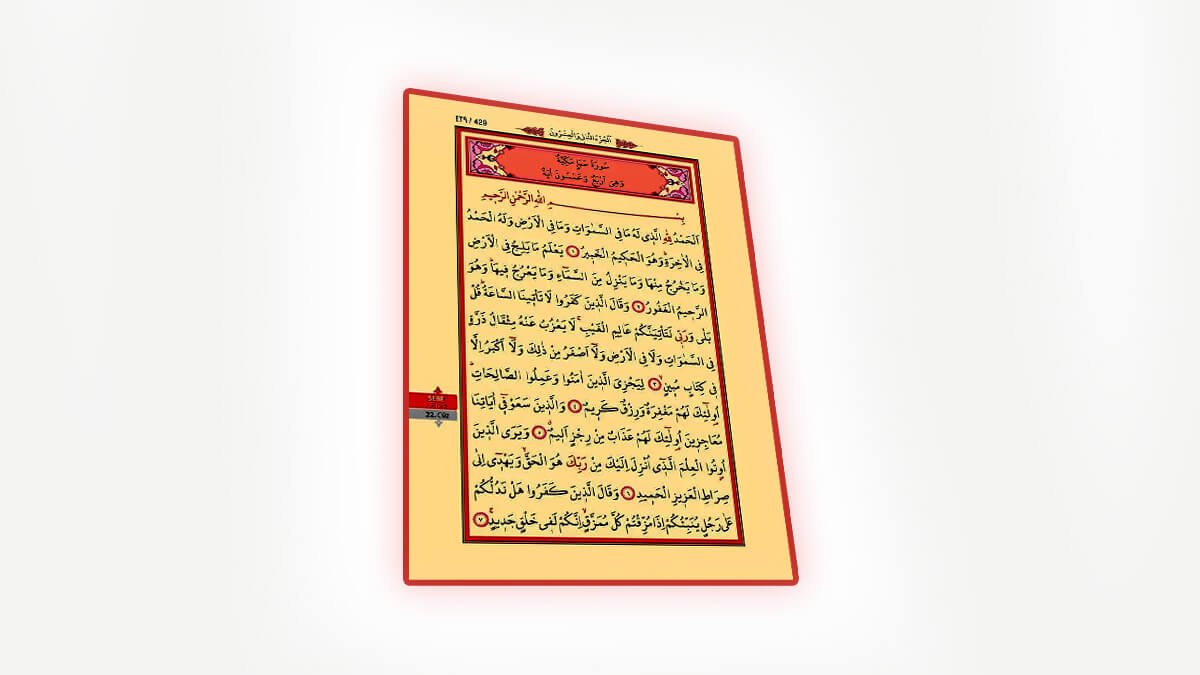 ٤٢٩ / 429
اَلْجُزْءُ الثَّانِى وَالْعِشْرُونَ
سُورَةُ سَبَإٍ مَكِّيَّةٌ
وَهِىَ اَرْبَعٌ وَخَمْسُونَ اٰيَةً
بِسْــــمِ اللّٰهِ الرَّحْمٰنِ الرَّحٖيمِ
اَلْحَمْدُ لِلّٰهِ الَّذٖى لَهُ مَا فِى السَّمٰوَاتِ وَمَا فِى الْاَرْضِ وَلَهُ الْحَمْدُ
فِى الْاٰخِرَةِ وَهُوَ الْحَكٖيمُ الْخَبٖيرُ ١ يَعْلَمُ مَا يَلِجُ فِى الْاَرْضِ
وَمَا يَخْرُجُ مِنْهَا وَمَا يَنْزِلُ مِنَ السَّمَٓاءِ وَمَا يَعْرُجُ فٖيهَا وَهُوَ
الرَّحٖيمُ الْغَفُورُ ٢ وَقَالَ الَّذٖينَ كَفَرُوا لَا تَاْتٖينَا السَّاعَةُ قُلْ
بَلٰى وَرَبّٖى لَتَاْتِيَنَّكُمْ عَالِمِ الْغَيْبِ لَا يَعْزُبُ عَنْهُ مِثْقَالُ ذَرَّةٍ
فِى السَّمٰوَاتِ وَلَا فِى الْاَرْضِ وَلَٓا اَصْغَرُ مِنْ ذٰلِكَ وَلَٓا اَكْبَرُ اِلَّا
فٖى كِتَابٍ مُبٖينٍ ٣ لِيَجْزِىَ الَّذٖينَ اٰمَنُوا وَعَمِلُوا الصَّالِحَاتِ
اُولٰٓئِكَ لَهُمْ مَغْفِرَةٌ وَرِزْقٌ كَرٖيمٌ ٤ وَالَّذٖينَ سَعَوْ فٖٓى اٰيَاتِنَا
مُعَاجِزٖينَ اُولٰٓئِكَ لَهُمْ عَذَابٌ مِنْ رِجْزٍ اَلٖيمٌ ٥ وَيَرَى الَّذٖينَ
اُوتُوا الْعِلْمَ الَّذٖٓى اُنْزِلَ اِلَيْكَ مِنْ رَبِّكَ هُوَ الْحَقَّ وَيَهْدٖٓى اِلٰى
صِرَاطِ الْعَزٖيزِ الْحَمٖيدِ ٦ وَقَالَ الَّذٖينَ كَفَرُوا هَلْ نَدُلُّكُمْ
عَلٰى رَجُلٍ يُنَبِّئُكُمْ اِذَا مُزِّقْتُمْ كُلَّ مُمَزَّقٍ اِنَّكُمْ لَفٖى خَلْقٍ جَدٖيدٍ ٧
SEBE'
22.Cüz